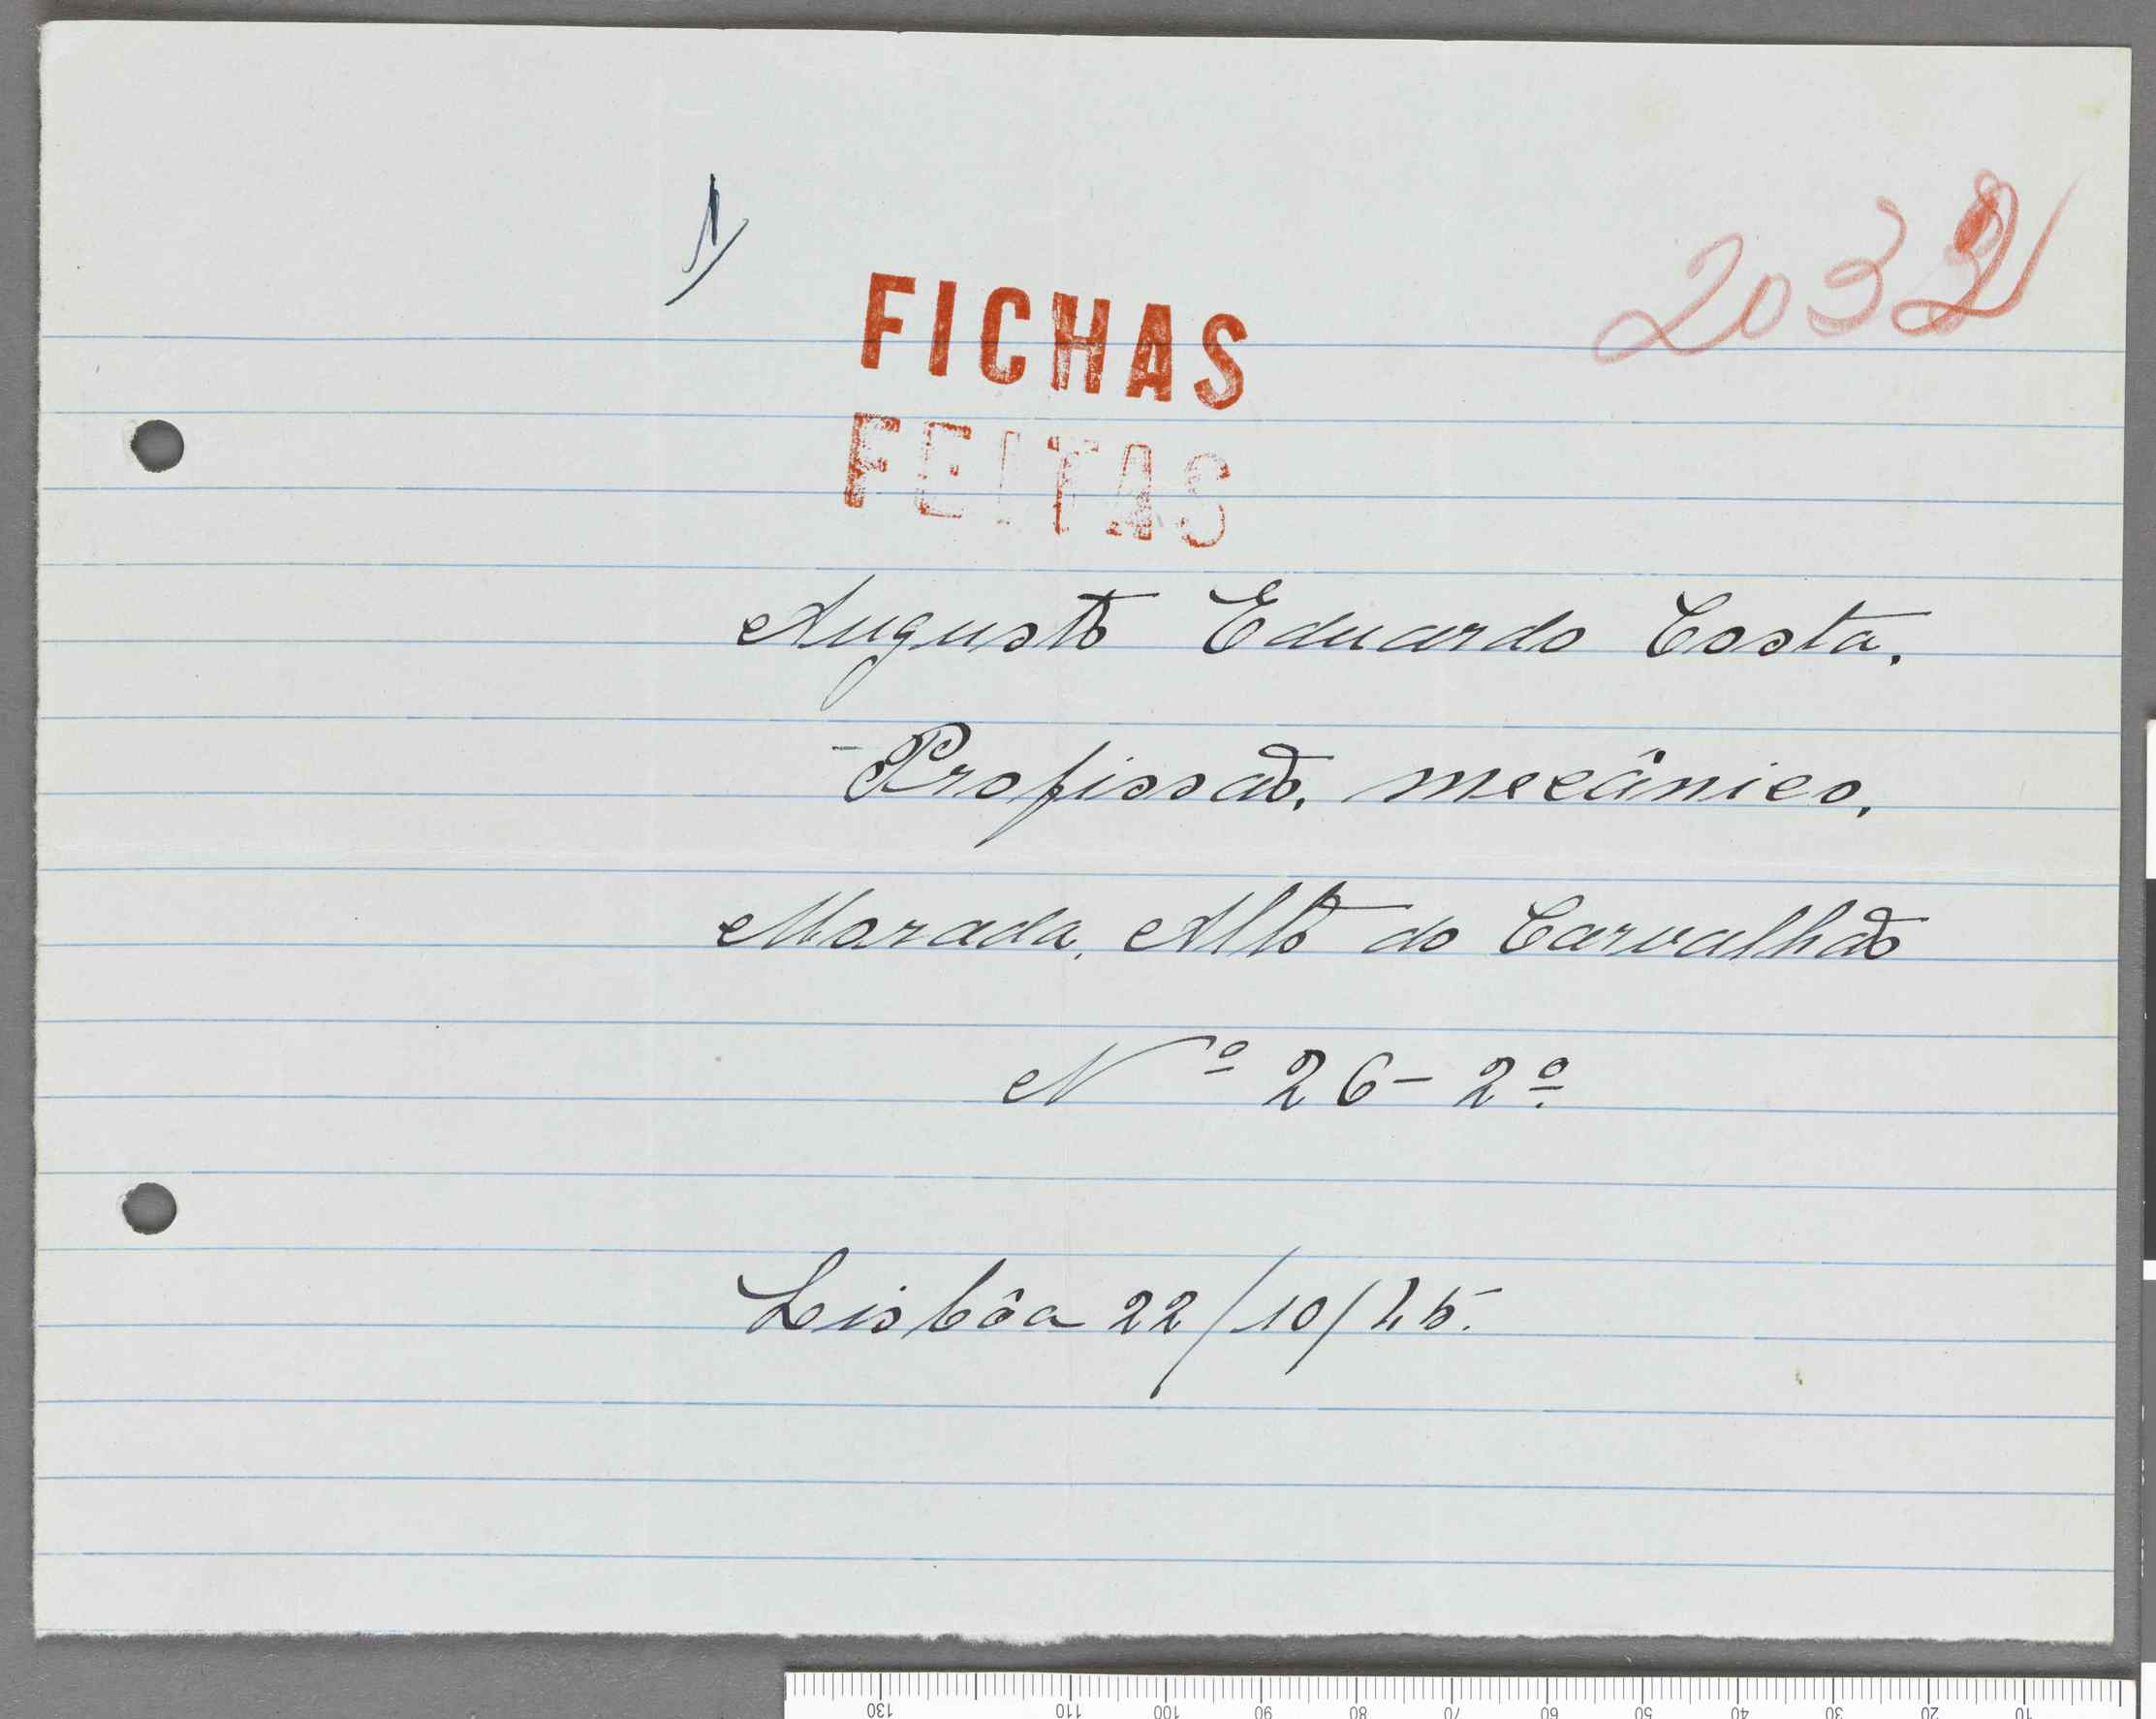 2032
FICHAS
FEITAS
Augusto Eduardo Costa.
- Profissão, mecânico.
Morada, Alto do Carvalhão
Nº 26 - 2º
Lisbôa 22/10/45.
130 110 100 90 80 70 60 50 40 30 20 10